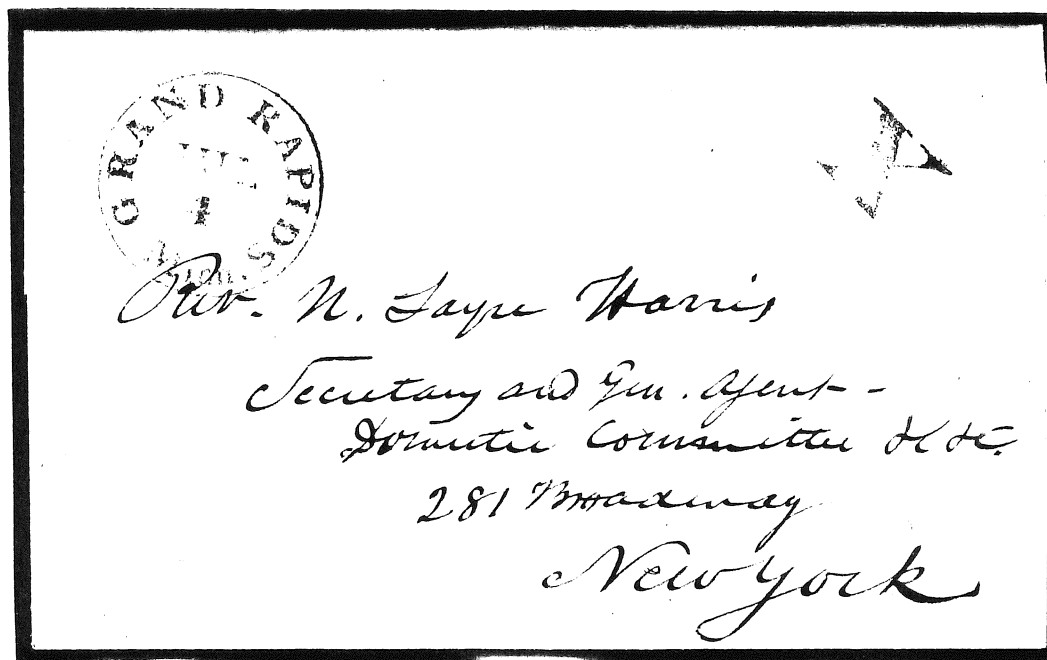 GRAND RAPIDS
4
Mich.
Rev. N. Sayre Harris
Secretary and Gen. Agent -
Domestic Committee &c &c.
281 Broadway
New York